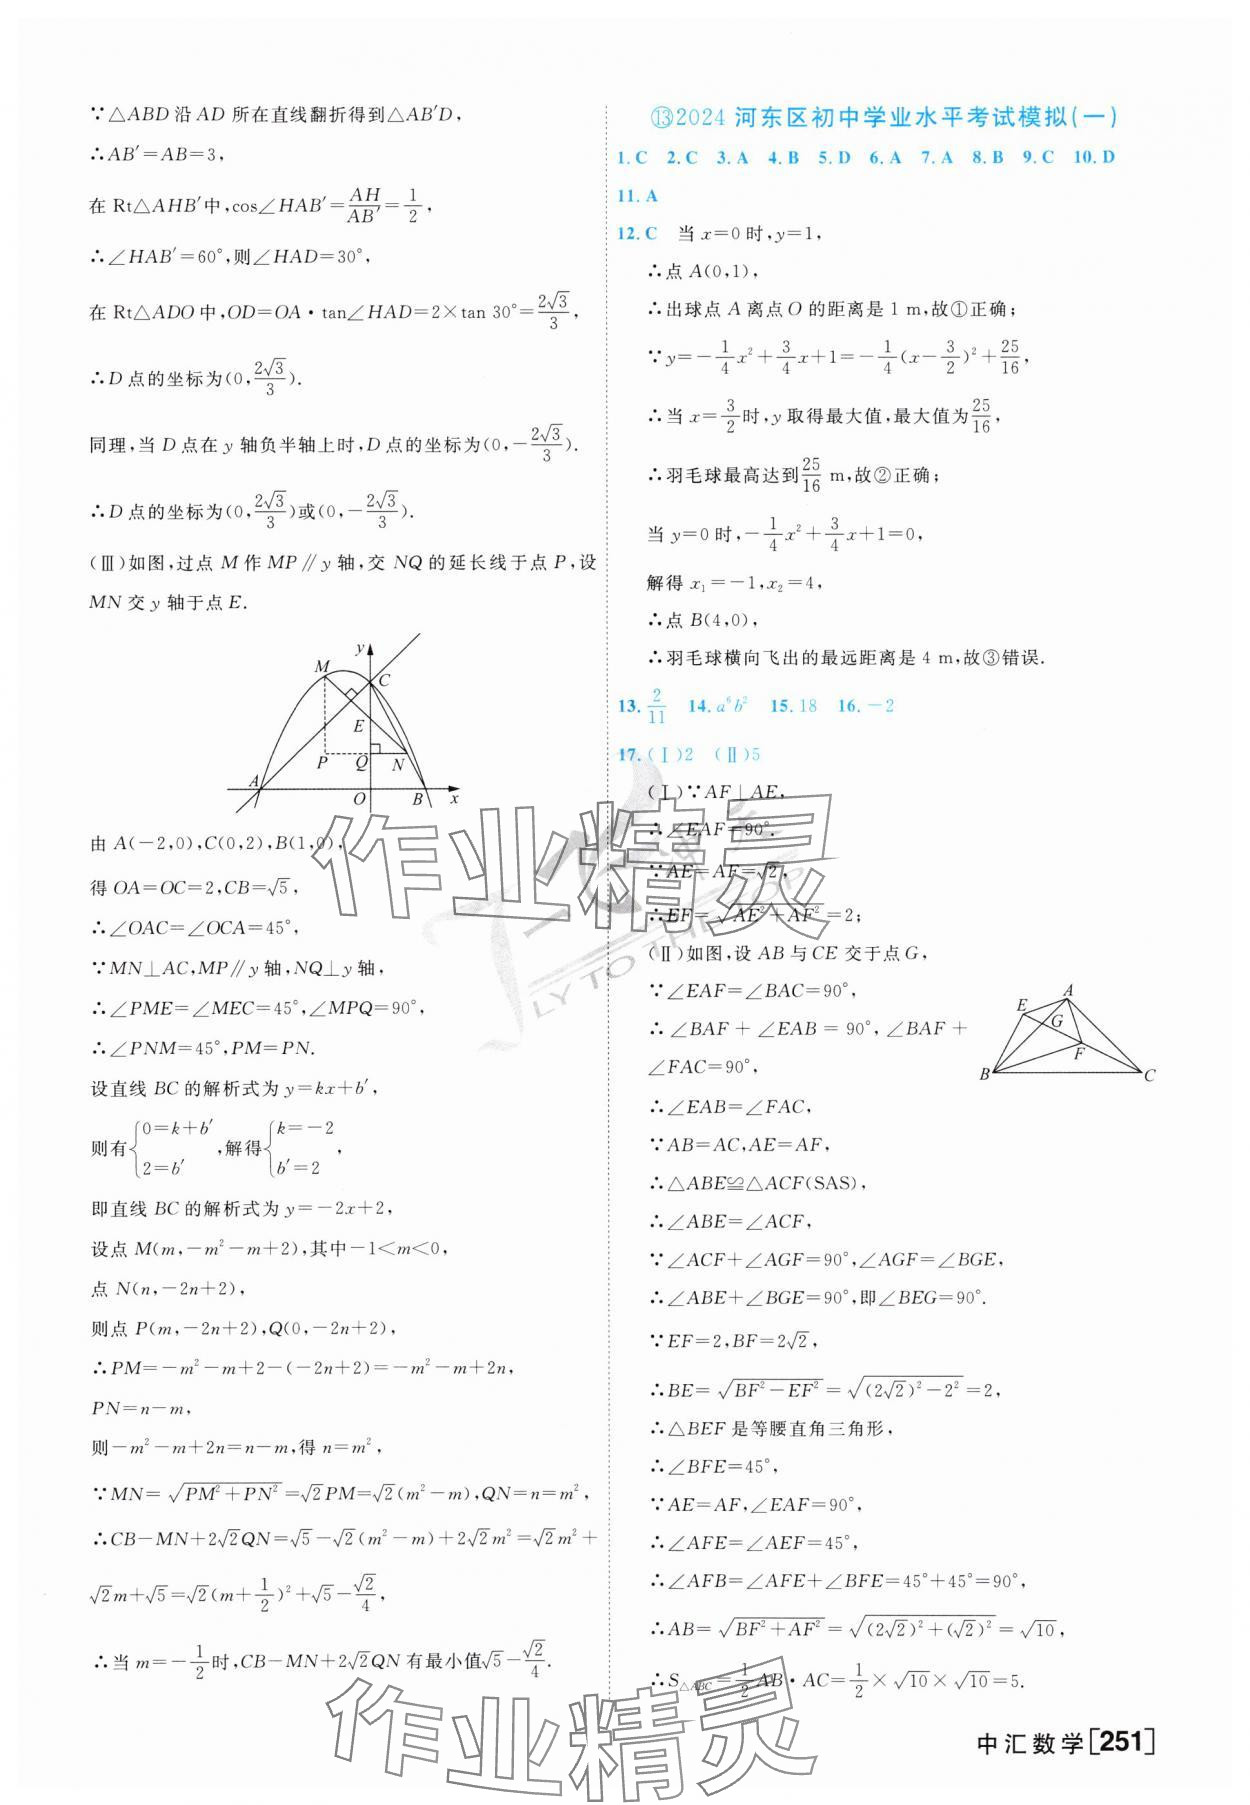 ∵△ABD沿AD所在直线翻折得到△AB′D,
∴AB′=AB=3,
在Rt△AHB′中,cos∠HAB′=AH/AB′=1/2,
∴∠HAB′=60°,则∠HAD=30°,
在Rt△ADO中,OD=OA·tan∠HAD=2×tan 30°=2√3/3,
∴D点的坐标为(0,2√3/3).
同理,当D点在y轴负半轴上时,D点的坐标为(0,-2√3/3).
∴D点的坐标为(0,2√3/3)或(0,-2√3/3).
(Ⅲ)如图,过点M作MP∥y轴,交NQ的延长线于点P,设
MN交y轴于点E.
y
M
C
E
P
Q
N
A
O
B
x
由A(-2,0),C(0,2),B(1,0),
得OA=OC=2,CB=√5,
∴∠OAC=∠OCA=45°,
∵MN⊥AC,MP∥y轴,NQ⊥y轴,
∴∠PME=∠MEC=45°,∠MPQ=90°,
∴∠PNM=45°,PM=PN.
设直线BC的解析式为y=kx+b′,
则有{0=k+b′ 2=b′,解得{k=-2 b′=2,
即直线BC的解析式为y=-2x+2,
设点M(m,-m²-m+2),其中-1<m<0,
点N(n,-2n+2),
则点P(m,-2n+2),Q(0,-2n+2),
∴PM=-m²-m+2-(-2n+2)=-m²-m+2n,
PN=n-m,
则-m²-m+2n=n-m,得n=m²,
∵MN=√(PM²+PN²)=√2PM=√2(m²-m),QN=n=m²,
∴CB-MN+2√2QN=√5-√2(m²-m)+2√2m²=√2m²+
√2m+√5=√2(m+1/2)²+√5-√2/4,
∴当m=-1/2时,CB-MN+2√2QN有最小值√5-√2/4.
⑬2024河东区初中学业水平考试模拟(一)
1.C 2.C 3.A 4.B 5.D 6.A 7.A 8.B 9.C 10.D
11.A
12.C 当x=0时,y=1,
∴点A(0,1),
∴出球点A离点O的距离是1 m,故①正确;
∵y=-1/4x²+3/4x+1=-1/4(x-3/2)²+25/16,
∴当x=3/2时,y取得最大值,最大值为25/16,
∴羽毛球最高达到25/16 m,故②正确;
当y=0时,-1/4x²+3/4x+1=0,
解得x₁=-1,x₂=4,
∴点B(4,0),
∴羽毛球横向飞出的最远距离是4 m,故③错误.
13.2/11 14.a⁶b² 15.18 16.-2
17.(Ⅰ)2 (Ⅱ)5
(Ⅰ)∵AF⊥AE,
∴∠EAF=90°.
∵AE=AF=√2,
∴EF=√(AE²+AF²)=2;
(Ⅱ)如图,设AB与CE交于点G,
∵∠EAF=∠BAC=90°,
∴∠BAF+∠EAB=90°,∠BAF+
∠FAC=90°,
A
E
G
F
B
C
∴∠EAB=∠FAC,
∵AB=AC,AE=AF,
∴△ABE≌△ACF(SAS),
∴∠ABE=∠ACF,
∵∠ACF+∠AGF=90°,∠AGF=∠BGE,
∴∠ABE+∠BGE=90°,即∠BEG=90°.
∵EF=2,BF=2√2,
∴BE=√(BF²-EF²)=√((2√2)²-2²)=2,
∴△BEF是等腰直角三角形,
∴∠BFE=45°,
∵AE=AF,∠EAF=90°,
∴∠AFE=∠AEF=45°,
∴∠AFB=∠AFE+∠BFE=45°+45°=90°,
∴AB=√(BF²+AF²)=√((2√2)²+(√2)²)=√10,
∴S△ABC=1/2AB·AC=1/2×√10×√10=5.
作业精灵
作业精灵
中汇数学[251]